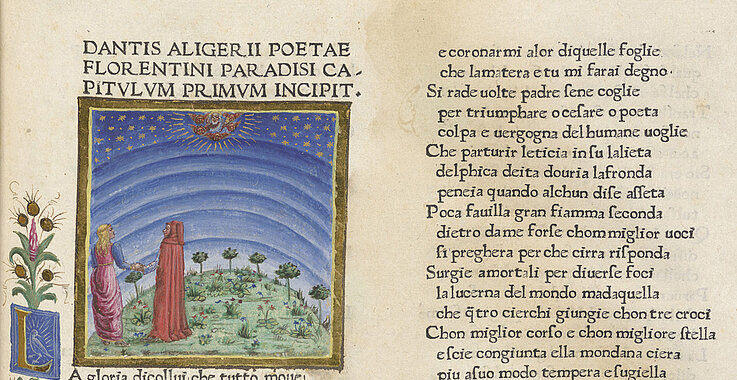 DANTIS ALIGERII POETAE
FLORENTINI PARADISI CA-
PITVLVM PRIMVM INCIPIT.
L
A gloria dicollui che tutto moue
e coronarmi alor diquelle foglie
che lamatera e tu mi farai degno.
Si rade uolte padre sene coglie
per triumphare o cesare o poeta
colpa e uergogna del humane uoglie
Che parturir leticia in su lalieta
delphica deita douria lafronda
peneia quando alchun dise asseta
Poca fauilla gran fiamma seconda
dietro dame forse chom miglior uoci
si preghera per che cirra risponda
Surgie amortali per diuerse foci
la lucerna del mondo madaquella
che q̃tro cierchi giungie chon tre croci
Chon miglior corso e chon migliore stella
e scie congiunta ella mondana ciera
piu asuo modo tempera e sugiella